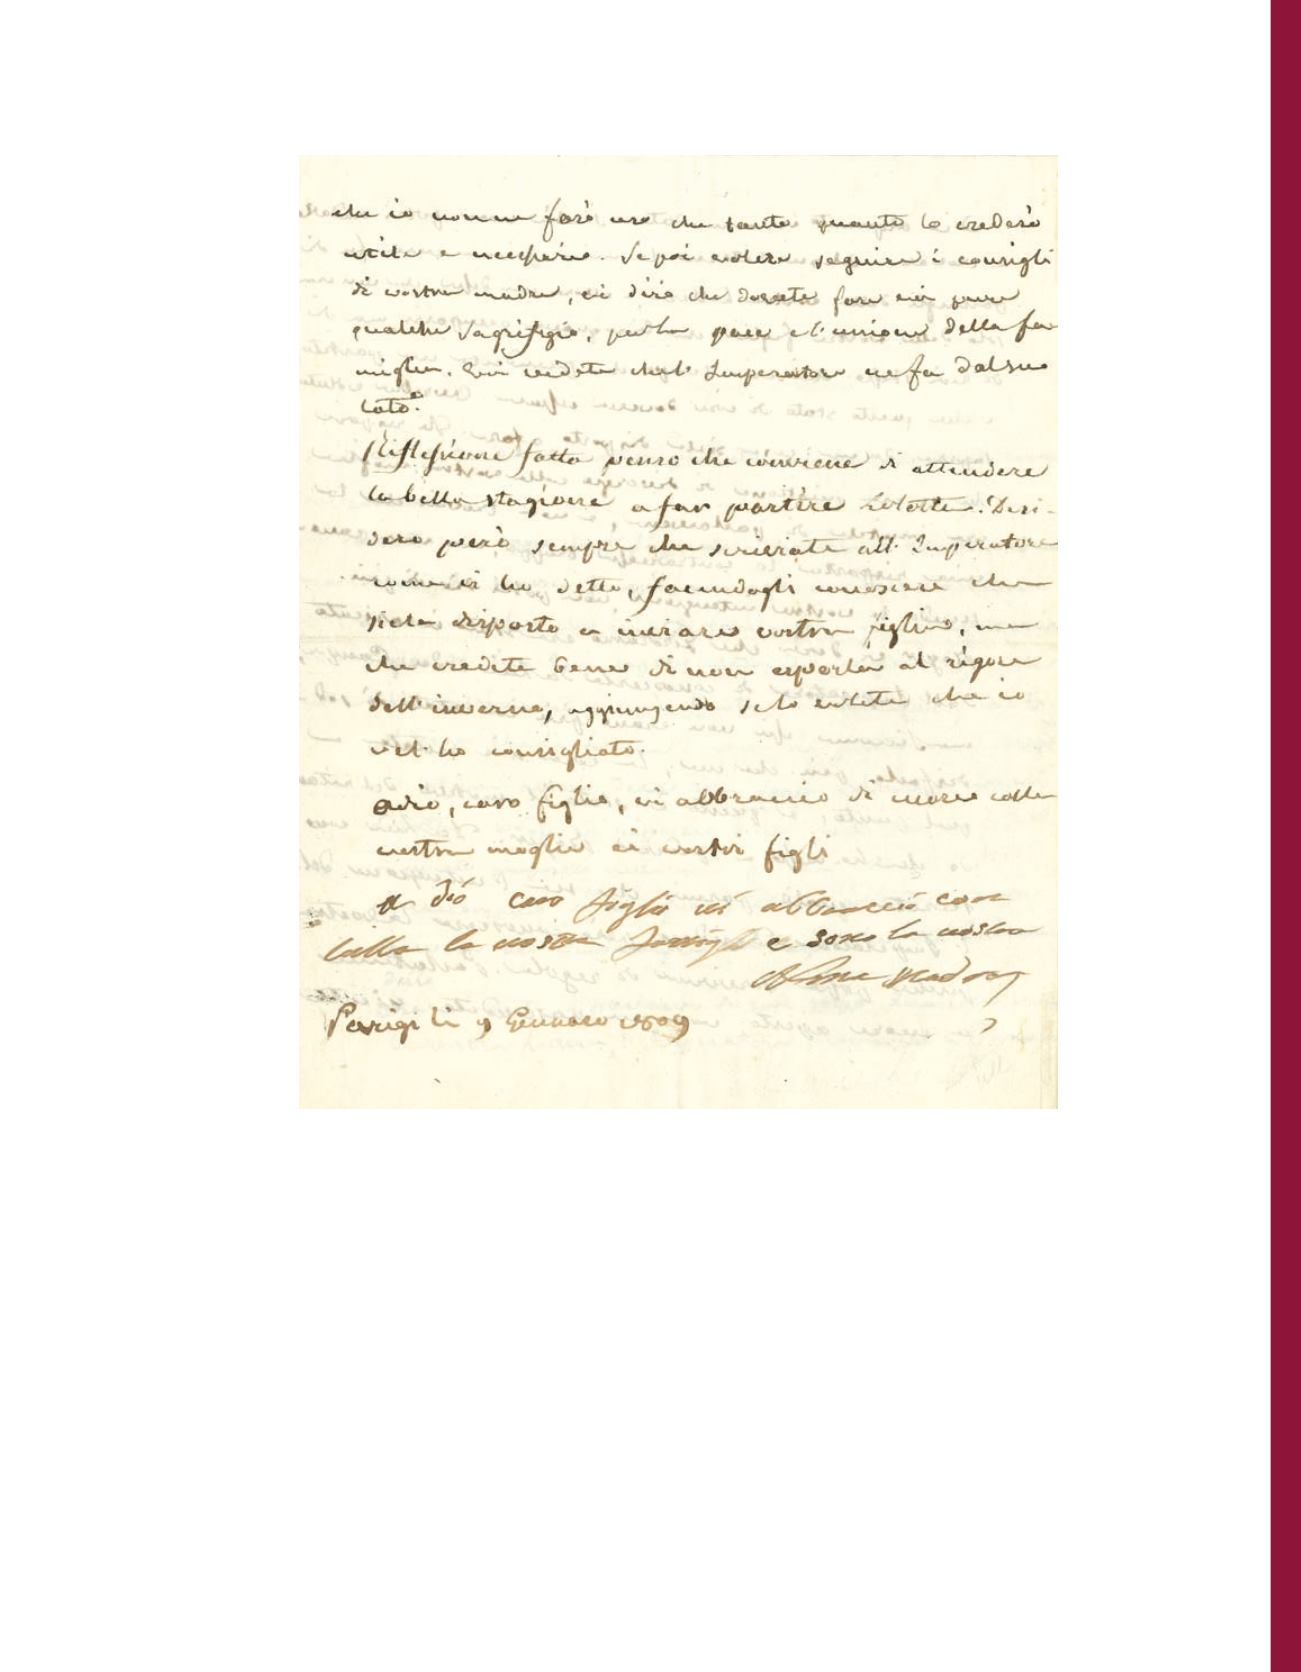 che io non ne farò uso che tanto quanto lo crederò
utile e necessario. Se poi volete seguire i consigli
di vostra madre, vi dirò che dovete fare voi pure
qualche sagrifizio, per la pace e l'unione della fa
miglia. Voi vedete che l'Imperatore ne fa dal suo
lato.
Riflessione fatta penso che conviene di attendere
la bella stagione a far partire Lolotte. Desi-
dero però sempre che scriviate all'Imperatore
come vi ho detto, facendogli conoscere che
siete disposto a inviare vostra figlia, ma
che credete bene di non esporla al rigore
dell'inverno, aggiungendo se lo volete che io
vel'ho consigliato.
adio, caro figlio, vi abbraccio di cuore colla
vostra moglie ei vostri figli
a dio caro figlio vi abbraccio con
tutta la vostra famiglia e sono la vostra
Madre
Parigi li 9 Gennaro 1809